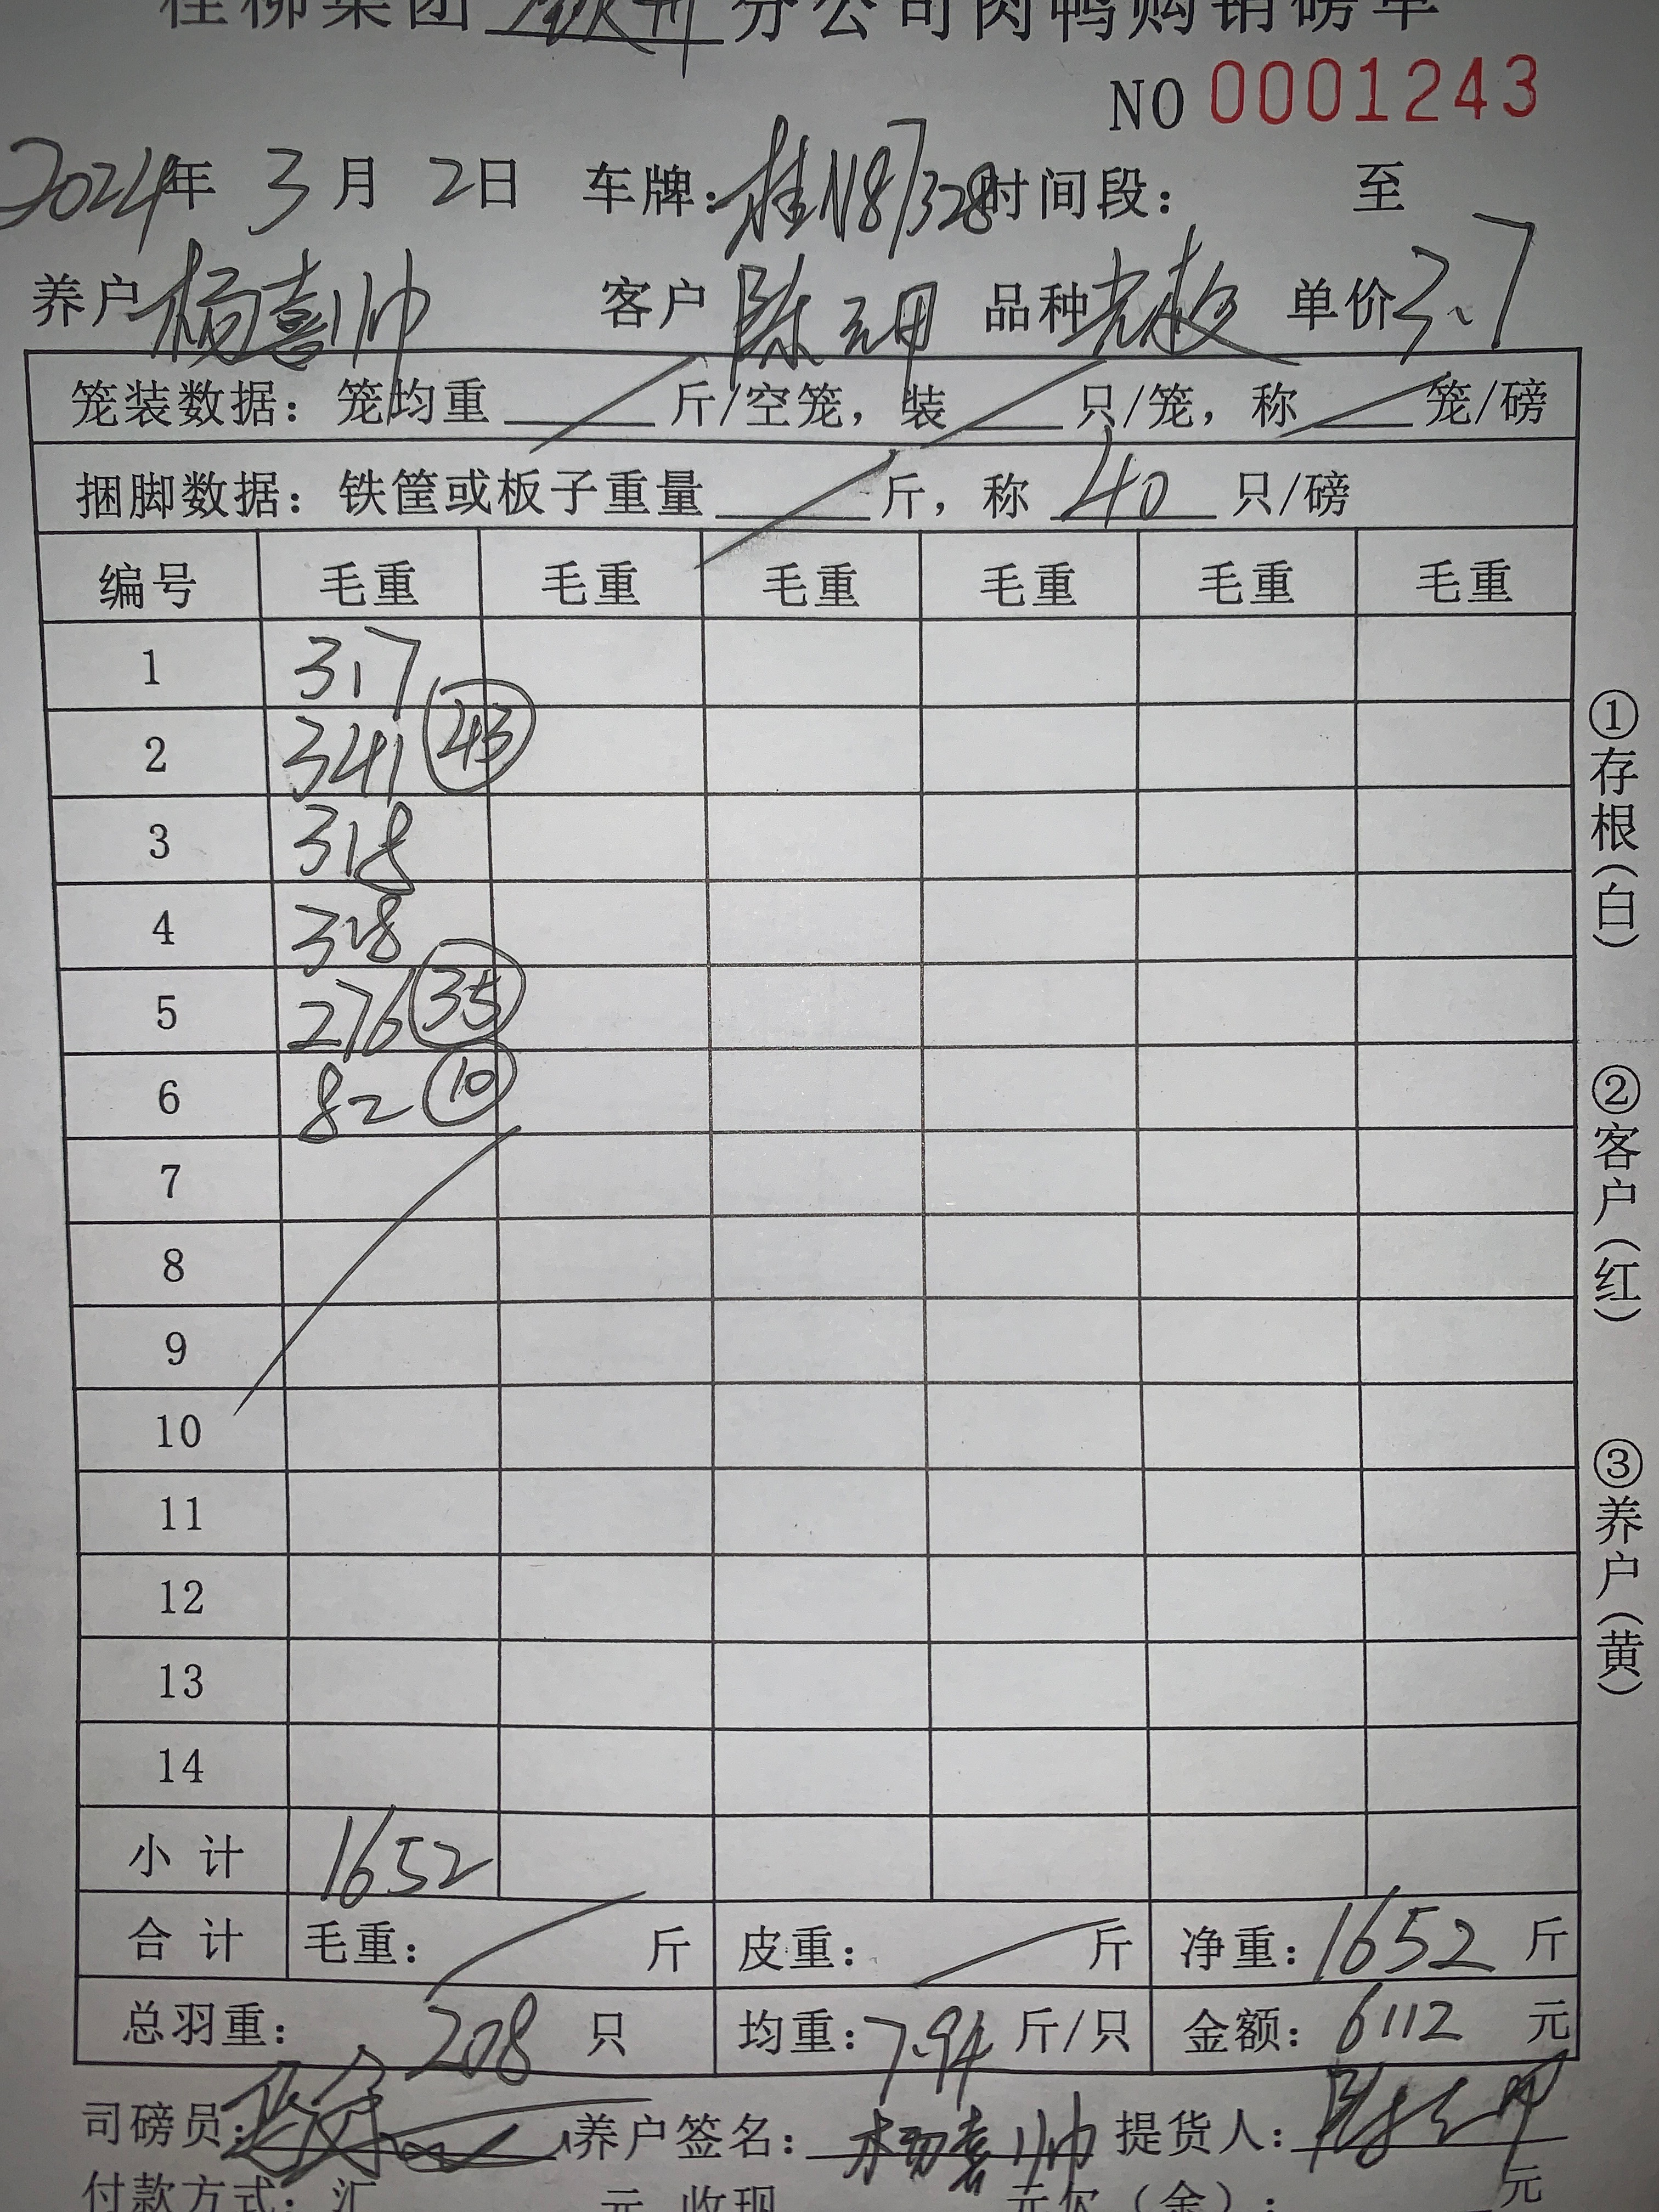 桂柳集团钦州分公司肉鸭购销磅单
NO 0001243
2024年 3月 2日 车牌:桂N87328 时间段: 至
养户 杨喜帅 客户 陈 品种 单价3.7
笼装数据:笼均重 斤/空笼,装 只/笼,称 笼/磅
捆脚数据:铁筐或板子重量 斤,称 40 只/磅
编号 毛重 毛重 毛重 毛重 毛重 毛重
1 317
2 341 43
3 318
4 318
5 276 35
6 82 10
7
8
9
10
11
12
13
14
小计 1652
合计 毛重: 斤 皮重: 斤 净重:1652 斤
总羽重: 208 只 均重:7.94 斤/只 金额:6112 元
司磅员: 养户签名:杨喜帅 提货人:
付款方式:汇 元 收现 元欠(金): 元
①存根(白)
②客户(红)
③养户(黄)